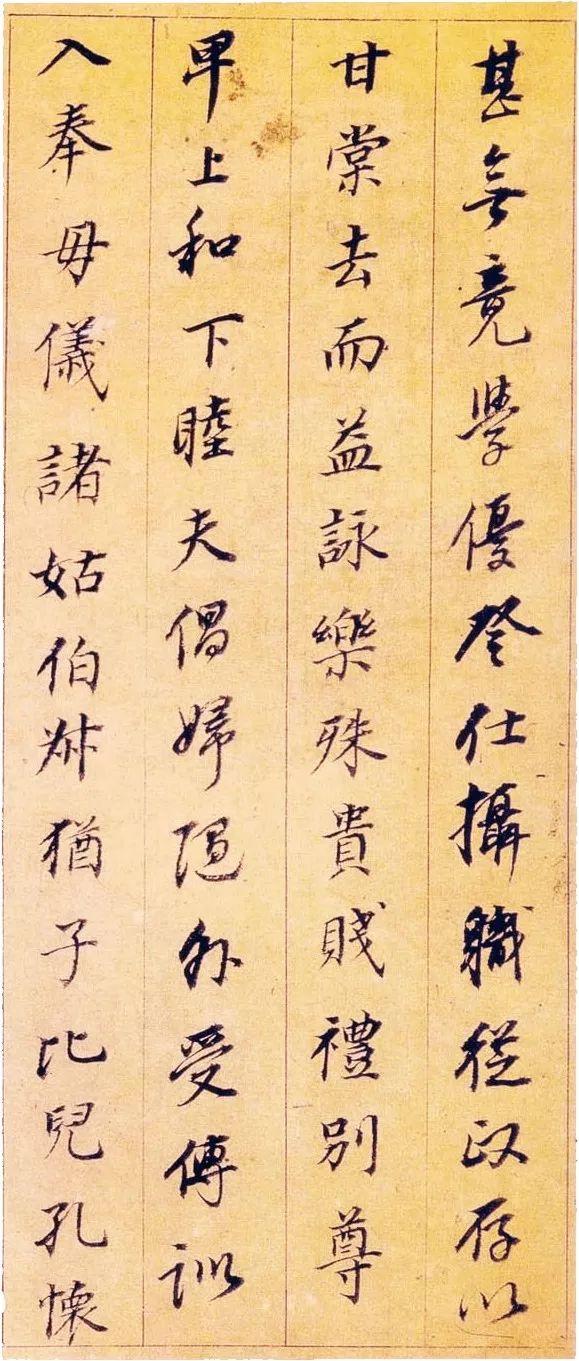 甚無竟學優登仕攝職從政存以
甘棠去而益詠樂殊貴賤禮別尊
卑上和下睦夫倡婦隨外受傅訓
入奉母儀諸姑伯叔猶子比兒孔懷